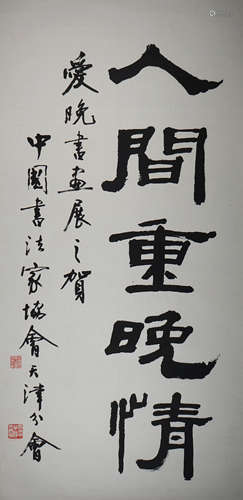 人間重晚情
愛晚書畫展之賀
中國書法家協會天津分會